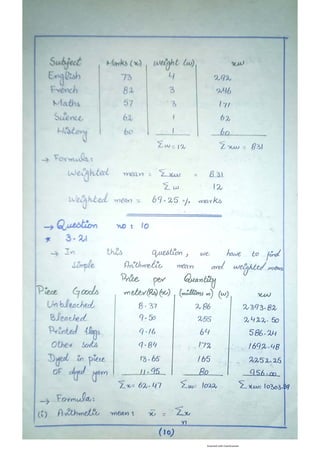 Subject Marks (x) weight (w) xw
English 73 4 292
French 82 3 246
Maths 57 3 171
Science 62 1 62
History 60 1 60
Σw = 12 Σxw = 831
→ Formula:
Weighted mean = Σxw = 831
Σw 12
Weighted mean = 69.25 % marks
→ Question no : 10
* 3.21
→ In this question, we have to find
simple Arithmetic mean and weighted mean
Price per Quantity
Piece Goods meter(Rs)(x) (millions m) (w) xw
Unbleached 8.37 286 2393.82
Bleached 9.50 255 2422.50
Printed flags 9.16 64 586.24
Other sorts 9.84 172 1692.48
Dyed in piece 13.65 165 2252.25
Of dyed yarn 11.95 80 956.00
Σx = 62.47 Σw = 1022 Σxw = 10303.29
→ Formula:
(i) Arithmetic mean : x̄ = Σx
n
(10)
Scanned with CamScanner